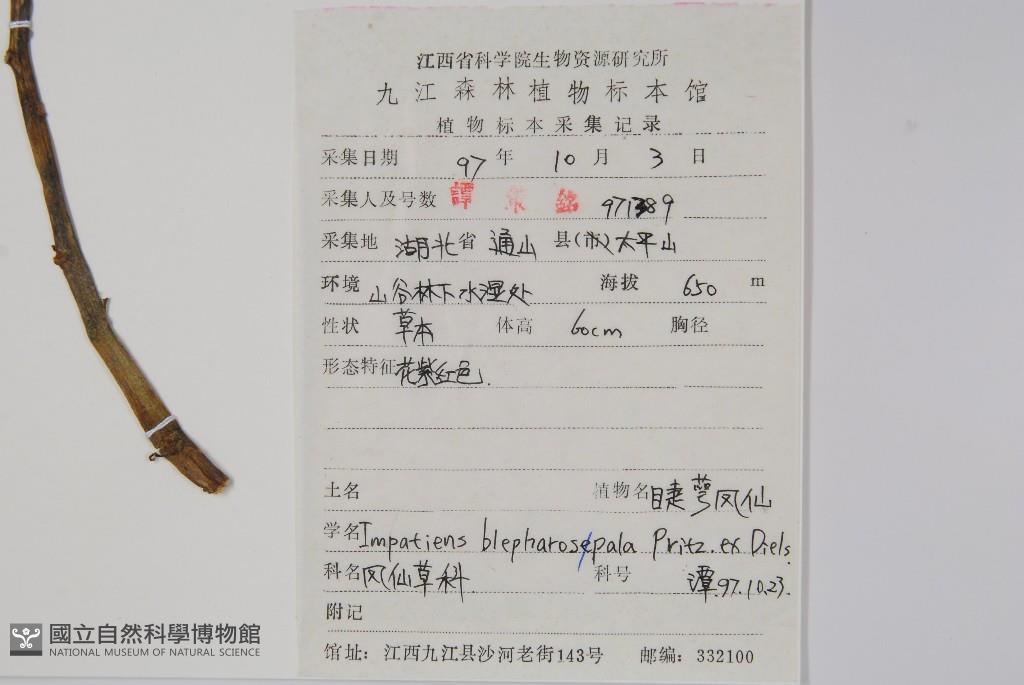 江西省科学院生物资源研究所
九江森林植物标本馆
植物标本采集记录
采集日期 97年 10月 3日
采集人及号数 譚策銘 971389
采集地 湖北省 通山 县(市)太平山
环境 山谷林下水湿处 海拔 650 m
性状 草本 体高 60cm 胸径
形态特征 花紫红色.
土名 植物名 睫萼凤仙
学名 Impatiens blepharosepala Pritz. ex Diels.
科名 凤仙草科 科号 潭.97.10.23.
附记
馆址：江西九江县沙河老街143号 邮编：332100
國立自然科學博物館
NATIONAL MUSEUM OF NATURAL SCIENCE